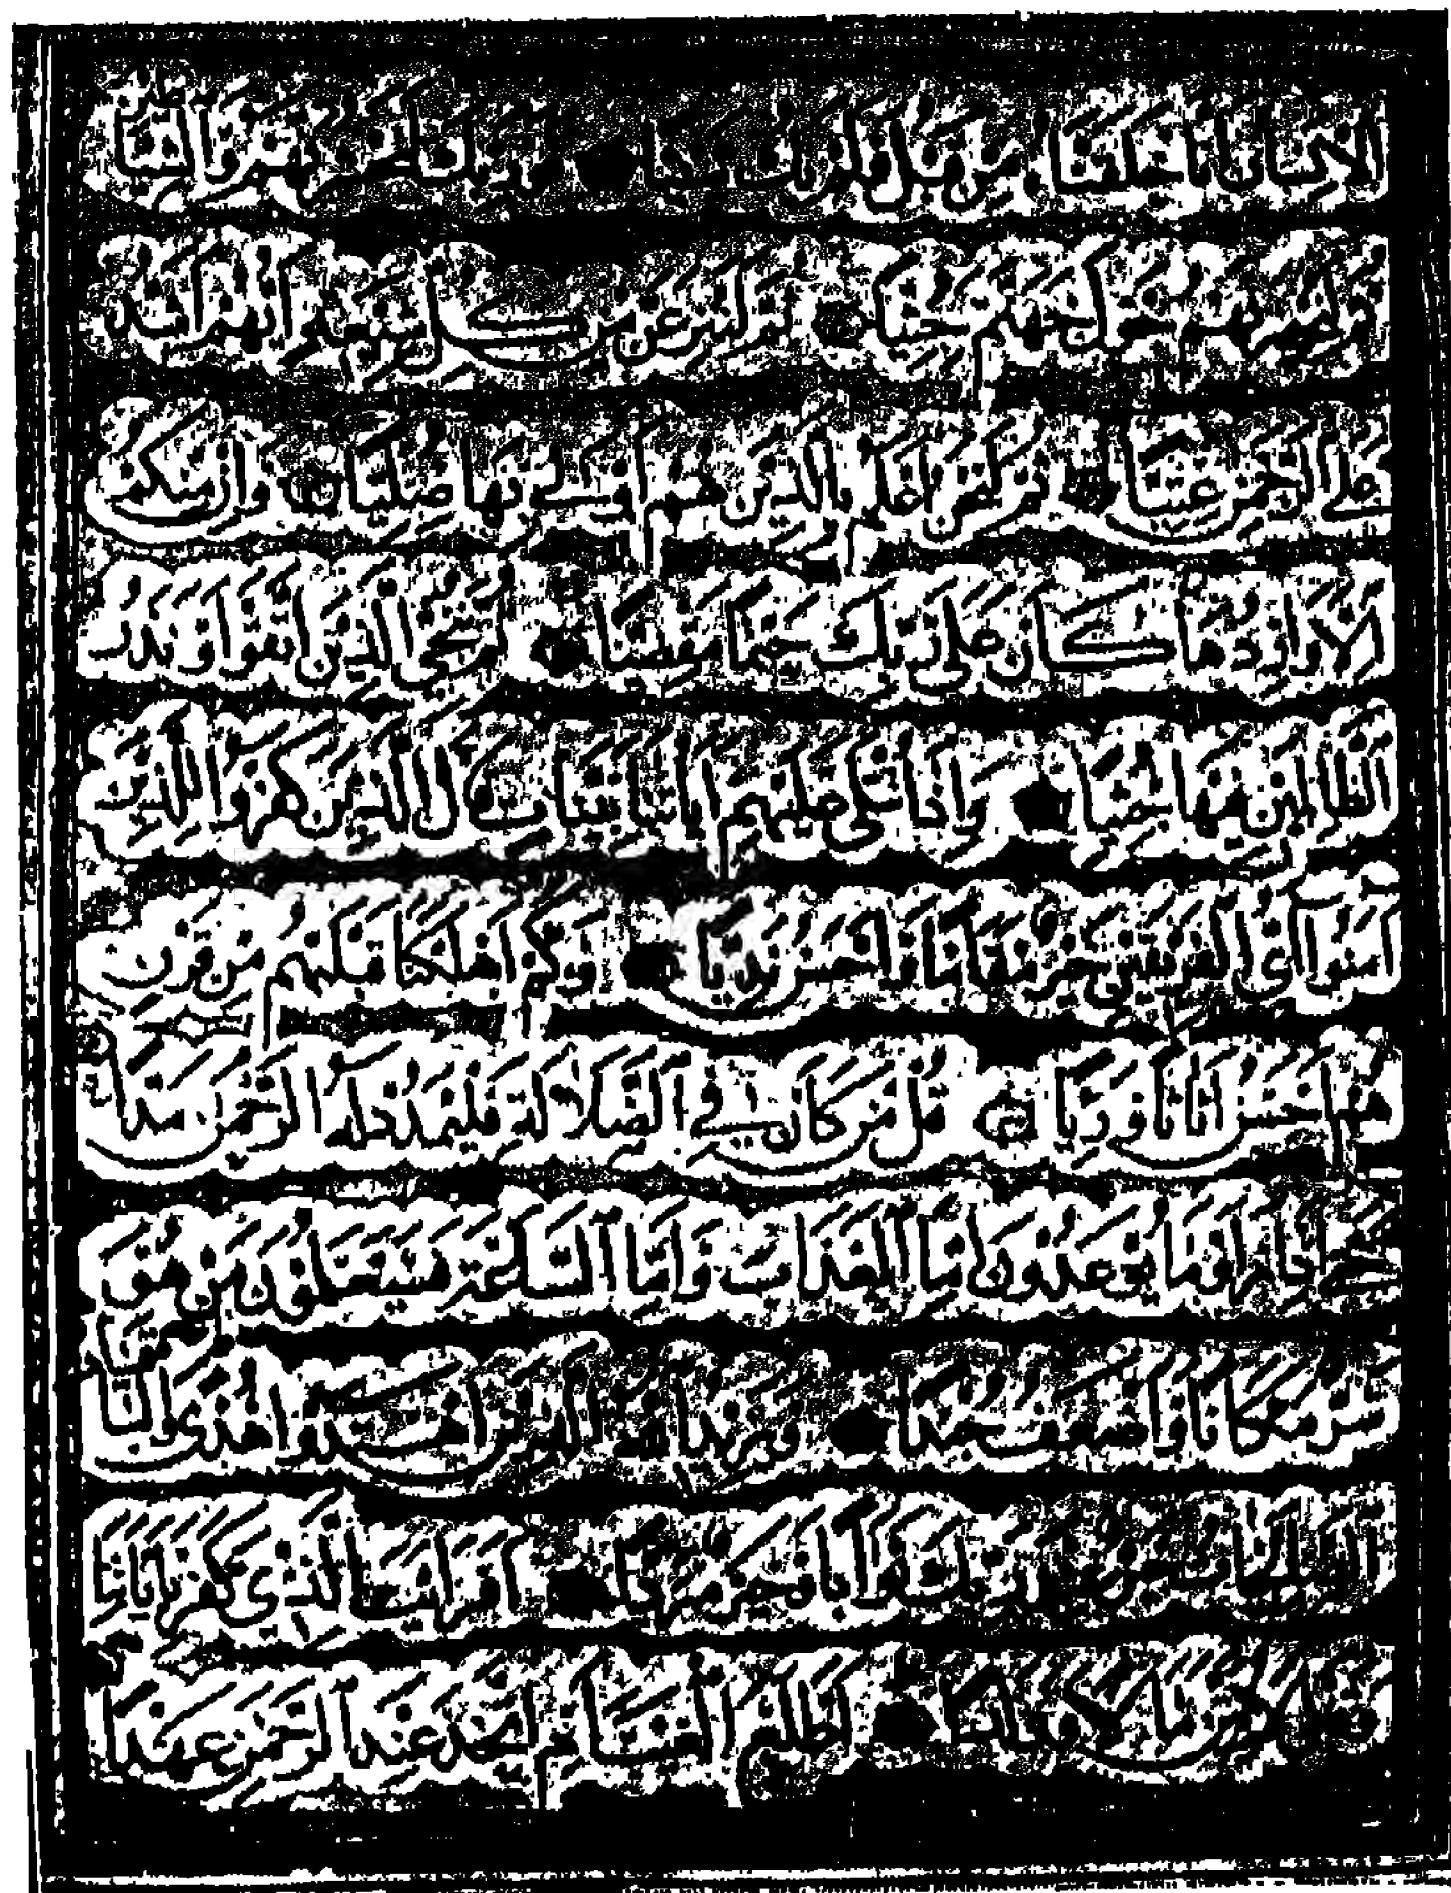 الانسان انا خلقناه من قبل ولم يك شيئا فوربك لنحشرنهم والشيا
طين ثم لنحضرنهم حول جهنم جثيا ثم لننزعن من كل شيعة ايهم اشد
على الرحمن عتيا ثم لنحن اعلم بالذين هم اولى بها صليا وان منكم
الا واردها كان على ربك حتما مقضيا ثم ننجي الذين اتقوا ونذر
الظالمين فيها جثيا واذا تتلى عليهم اياتنا بينات قال الذين كفروا للذين
امنوا اي الفريقين خير مقاما واحسن نديا وكم اهلكنا قبلهم من قرن
هم احسن اثاثا ورئيا قل من كان في الضلالة فليمدد له الرحمن مدا
حتى اذا راوا ما يوعدون اما العذاب واما الساعة فسيعلمون من هو
شر مكانا واضعف جندا ويزيد الله الذين اهتدوا هدى والبا
قيات الصالحات خير عند ربك ثوابا وخير مردا افرايت الذي كفر باياتنا
وقال لاوتين مالا وولدا اطلع الغيب ام اتخذ عند الرحمن عهدا